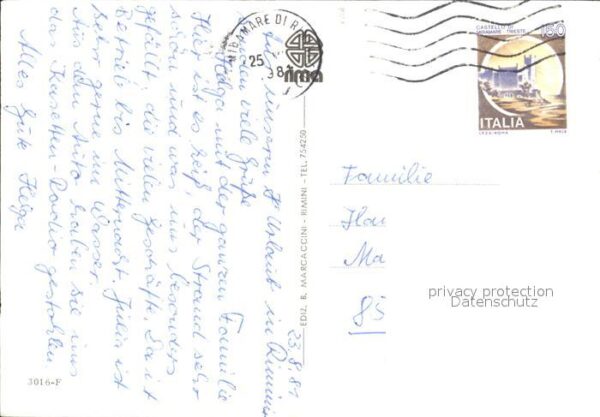 23.8.81
Aus unserem Urlaub in Rimini
senden viele Grüße
Helga mit der ganzen Familie
Hier ist es heiß, der Strand sehr
schön und was uns besonders
gefällt: die vielen Geschäfte. Da ist
Betrieb bis Mitternacht. Julia ist
sehr gerne im Wasser.
Aus dem Auto haben sie uns
das Kasetten-Radio gestohlen
Alles Gute Helga
3016-F
EDIZ. B. MARCACCINI - RIMINI - TEL. 754250
MARE DI
25
8
CASTELLO DI
MIRAMARE · TRIESTE
150
ITALIA
I.P.Z.S. ROMA
Familie
Han
Ma
85
privacy protection
Datenschutz